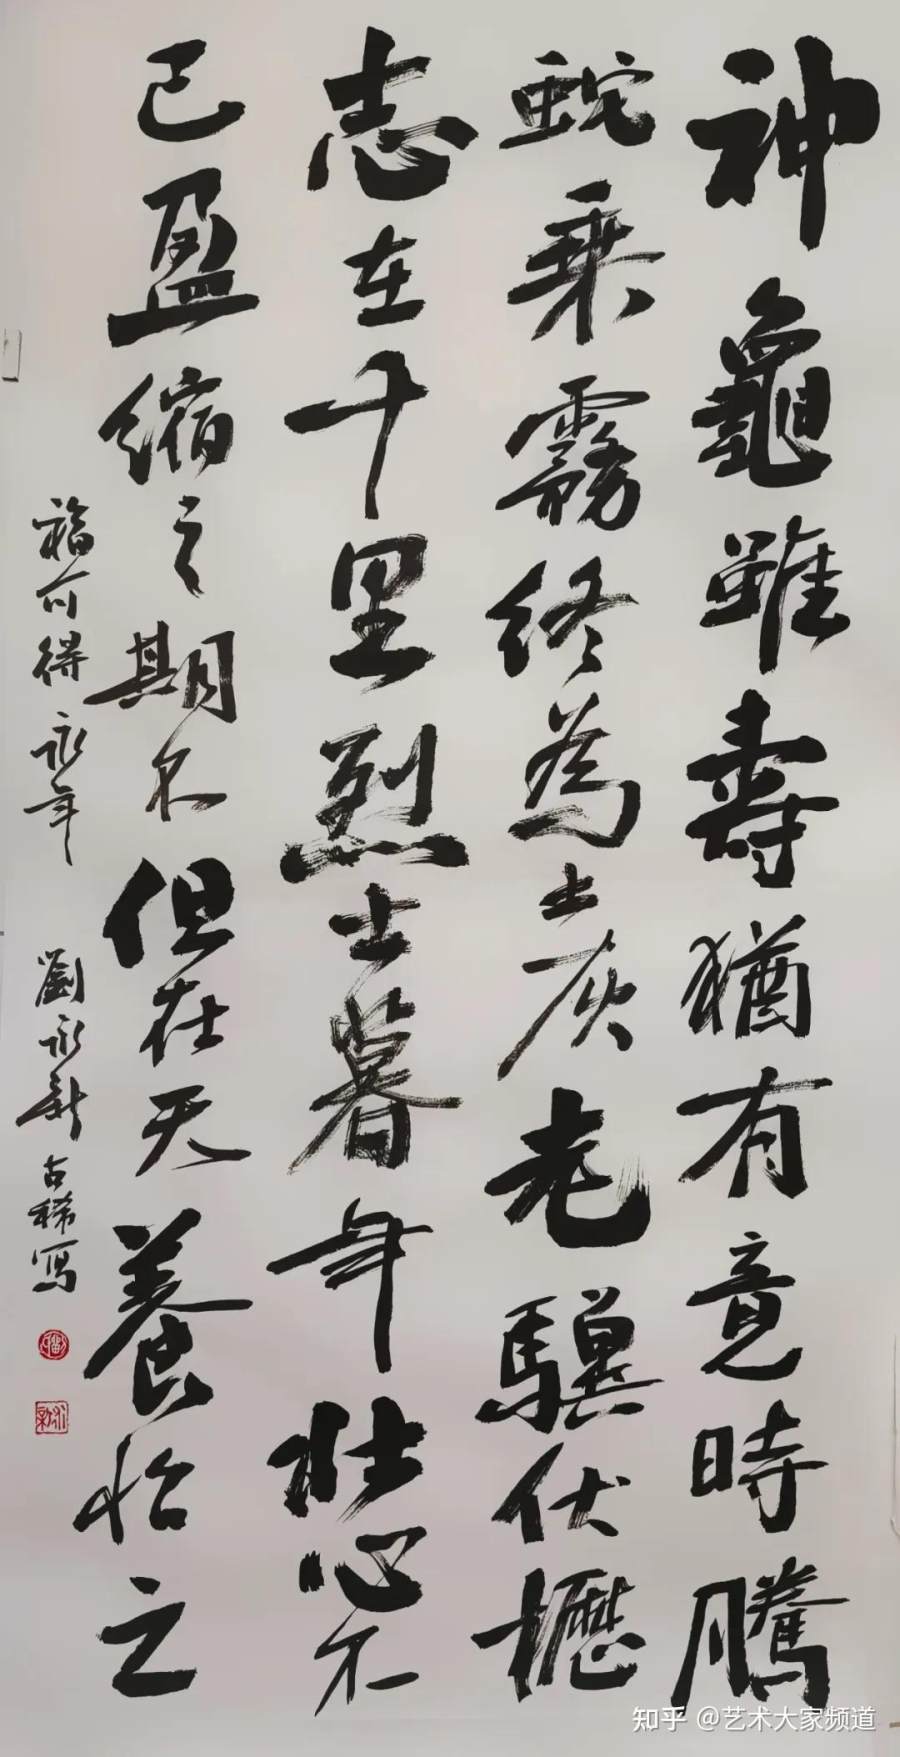 神龜雖壽猶有竟時騰
蛇乘霧終為土灰老驥伏櫪
志在千里烈士暮年壯心不
已盈縮之期不但在天養怡之
福可得永年 劉永新古稀寫
永新
知乎 @艺术大家频道